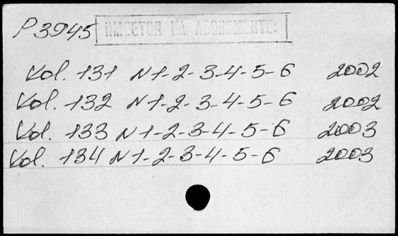 P3945 ИМЕЕТСЯ НА АБОНЕМЕНТЕ
Vol. 131 N1-2-3-4-5-6 2002
Vol. 132 N1-2-3-4-5-6 2002
Vol. 133 N1-2-3-4-5-6 2003
Vol. 134 N1-2-3-4-5-6 2003